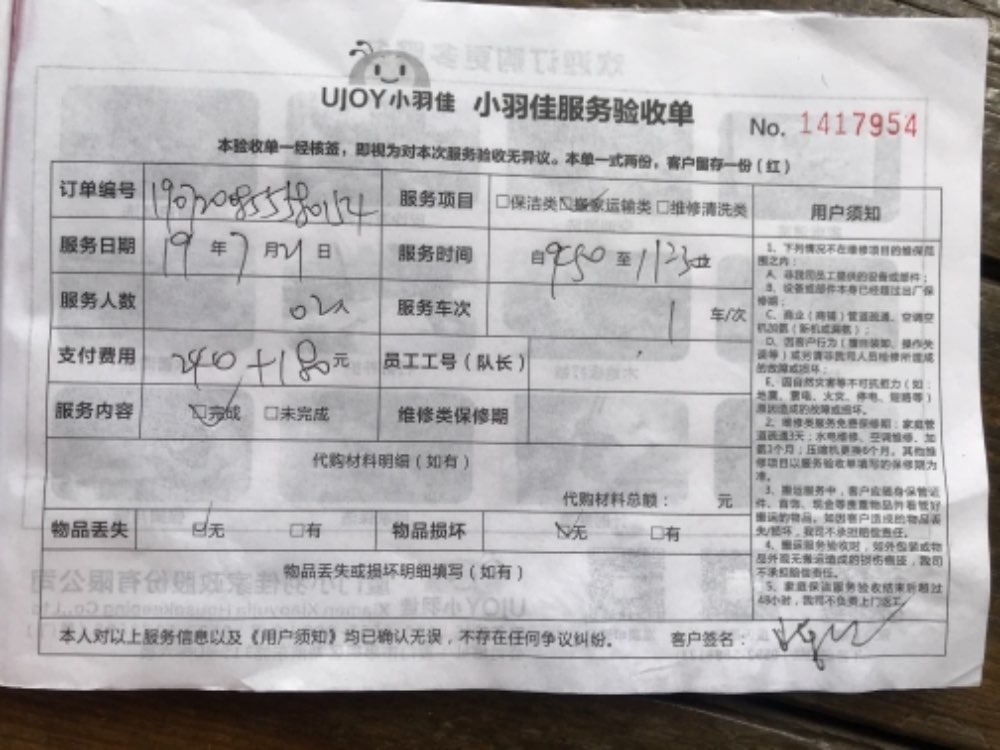 UJOY小羽佳 小羽佳服务验收单
No. 1417954
本验收单一经核签，即视为对本次服务验收无异议。本单一式两份，客户留存一份（红）
订单编号 服务项目 □保洁类 ☑搬家运输类 □维修清洗类
服务日期 19 年 7 月 21 日 服务时间 自 至
服务人数 02人 服务车次 1 车/次
支付费用 240+180 元 员工工号（队长）
服务内容 ☑完成 □未完成 维修类保修期
代购材料明细（如有）
代购材料总额： 元
物品丢失 ☑无 □有 物品损坏 ☑无 □有
物品丢失或损坏明细填写（如有）
本人对以上服务信息以及《用户须知》均已确认无误，不存在任何争议纠纷。 客户签名：
用户须知
1、下列情况不在维修项目的维保范
围之内：
A、非我司员工提供的设备或部件；
B、设备或部件本身已经超过出厂保
修期；
C、商企（商铺）管道疏通、空调空
机加氨（新机或漏氨）；
D、因客户行为（擅自装卸、操作失
误等）或另请非我司人员维修所造成
的故障或损坏；
E、因自然灾害等不可抗性力（如：
地震、雷电、火灾、停电、短路等）
原因造成的故障或损坏。
2、维修类服务免费保修期：家庭管
道疏通3天；水电维修、空调维修、加
氨1个月；压缩机更换6个月。其他维
修项目以服务验收单填写的保修期为
准。
3、搬运服务中，客户应随身保管证
件、首饰、现金等贵重物品并看管好
搬运的物品。如因客户造成的物品丢
失/损坏，我司不承担赔偿责任。
4、搬运服务验收时，如外包装或物
品外观无搬运造成的损伤痕迹，我司
不承担赔偿责任。
5、家庭保洁服务验收结束后超过
48小时，我司不负责上门返工。